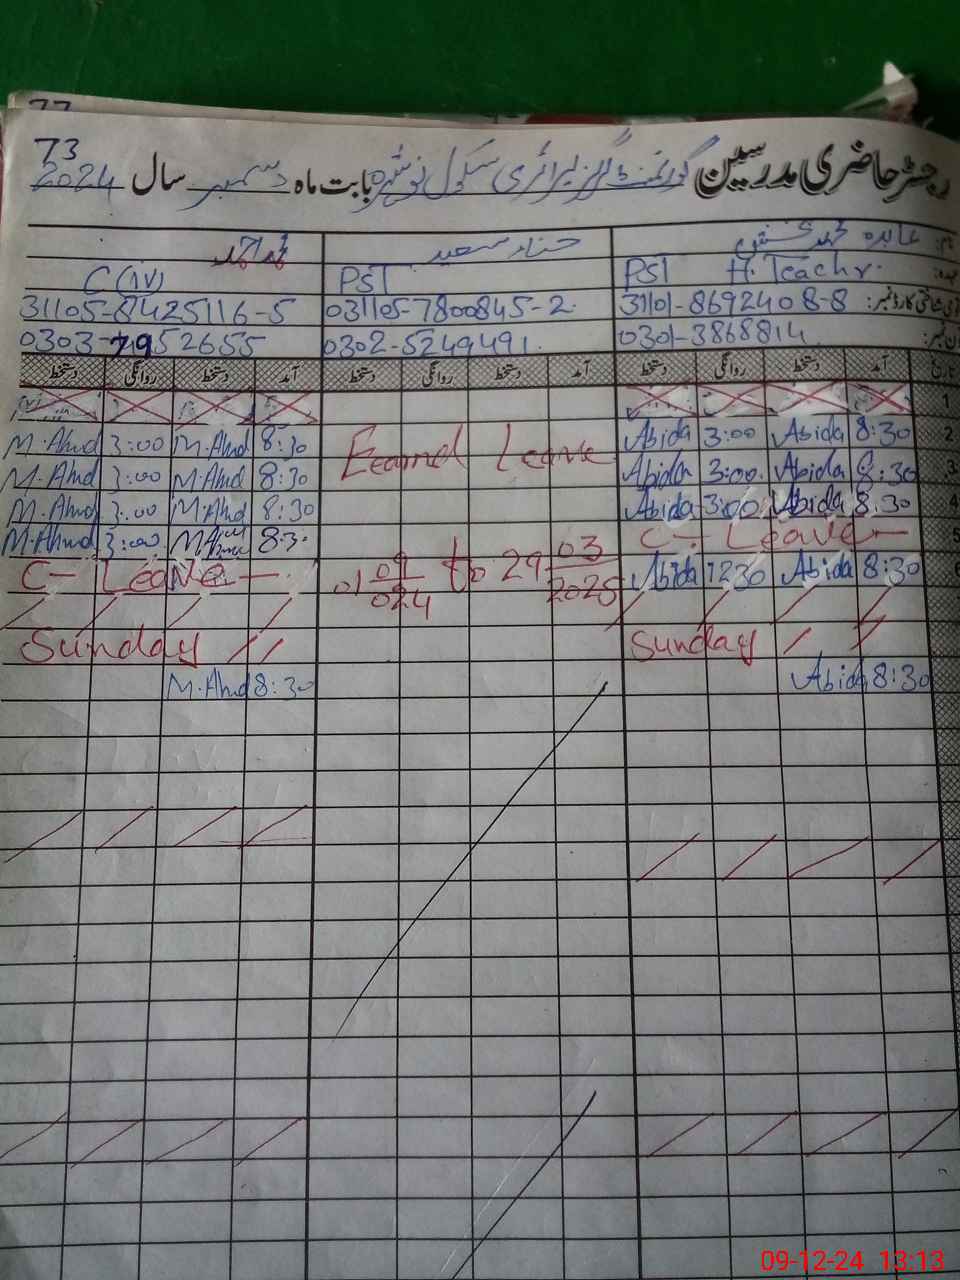 77
73
رجسٹر حاضری مدرسین گورنمنٹ گرلز پرائمری سکول نوشہرہ بابت ماہ دسمبر سال 2024
نام: عابدہ محمد حناء سعید محمد احمد
عہدہ: PST H. Teachr. PST C (IV)
قومی شناختی کارڈ نمبر: 31101-8692408-8 031105-7800845-2 31105-8425116-5
فون نمبر: 0301-3868814 0302-5249491 0303-7952655
تاریخ آمد دستخط روانگی دستخط آمد دستخط روانگی دستخط آمد دستخط روانگی دستخط
1
2 8:30 Abida 3:00 Abida Eearnd Leave 8:30 M.Ahmd 3:00 M.Ahmd
3 8:30 Abida 3:00 Abida 8:30 M.Ahmd 3:00 M.Ahmd
4 8:30 Abida 3:00 Abida 8:30 M.Ahmd 3:00 M.Ahmd
5 C- Leave- 8:30 3:00 M.Ahmd
6 8:30 Abida 1230 Abida 01 09/024 to 29 03/2025 C- Leave -
Sunday Sunday
8:30 Abida 8:30 M.Ahmd
09-12-24 13:13